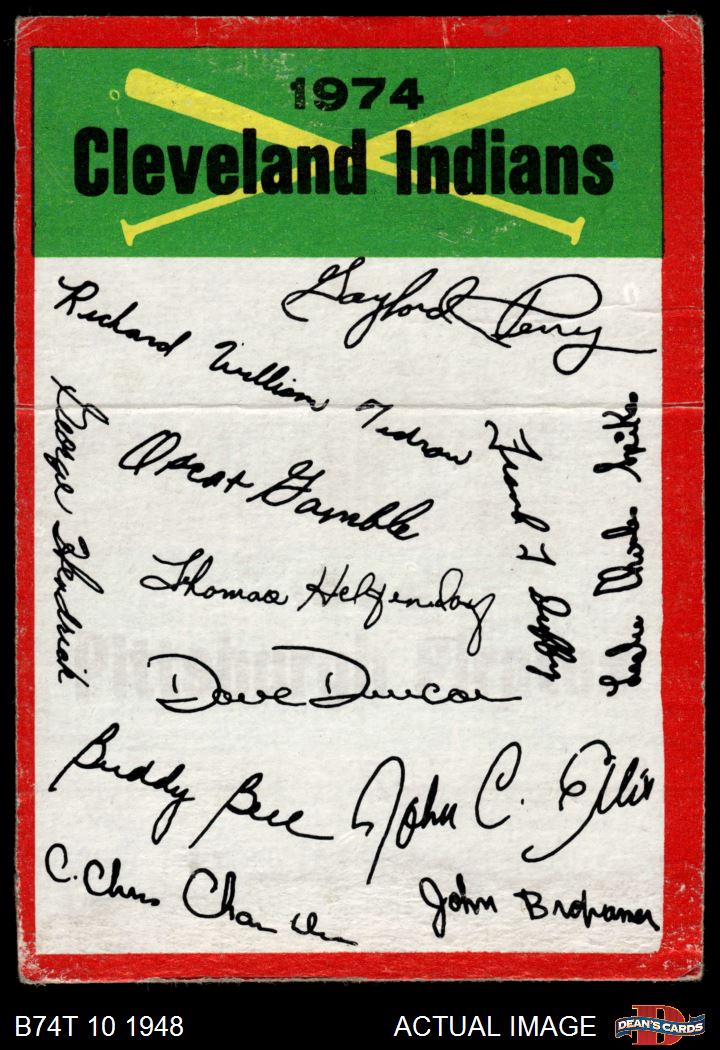 1974
Cleveland Indians
Gaylord Perry
Richard William Tidrow
George Hendrick
Oscar Gamble
Frank T Duffy
Leslie Charles Spikes
Thomas Hilgendorf
Dave Duncan
Buddy Bell
John C. Ellis
C. Chris Cham
John Brohamer
B74T 10 1948
ACTUAL IMAGE
DEAN'S CARDS